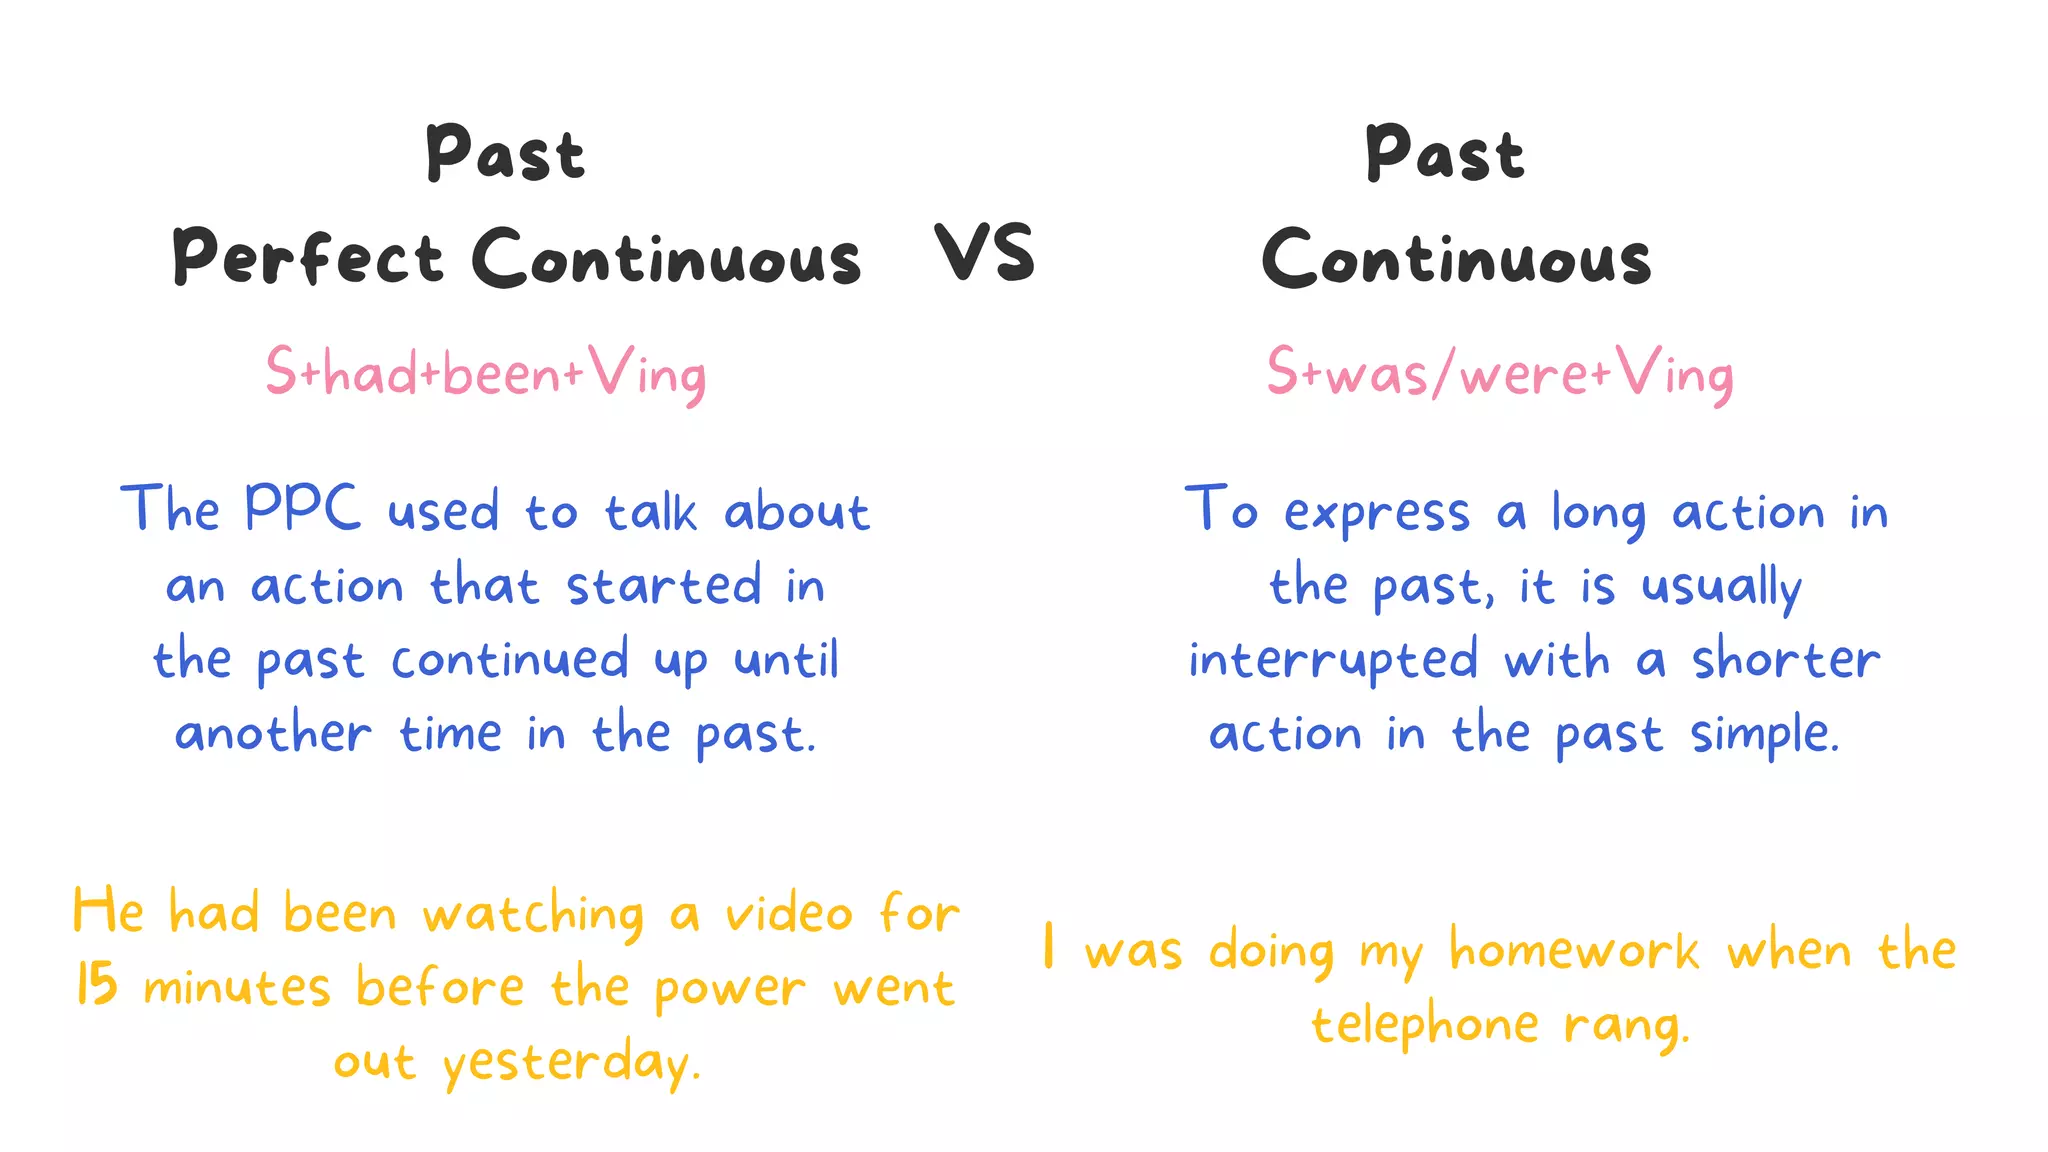 Past
Perfect Continuous
VS
Past
Continuous
S+had+been+Ving
The PPC used to talk about
an action that started in
the past continued up until
another time in the past.
He had been watching a video for
15 minutes before the power went
out yesterday.
S+was/were+Ving
To express a long action in
the past, it is usually
interrupted with a shorter
action in the past simple.
I was doing my homework when the
telephone rang.